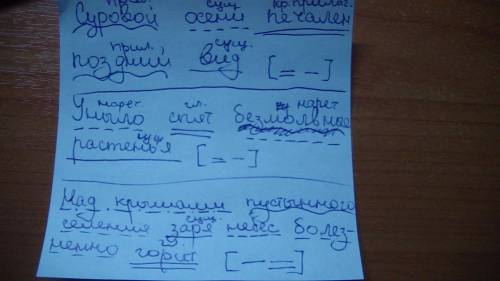 прил. сущ. кр. прилаг.
Суровой осени печален
прил. сущ.
поздний вид [= -]
нареч. гл. нареч
Уныло спят безмолвные
сущ
растенья [= -]
Над крышами пустынного
сущ.
селения заря небес болез-
гл.
ненно горит [- =]